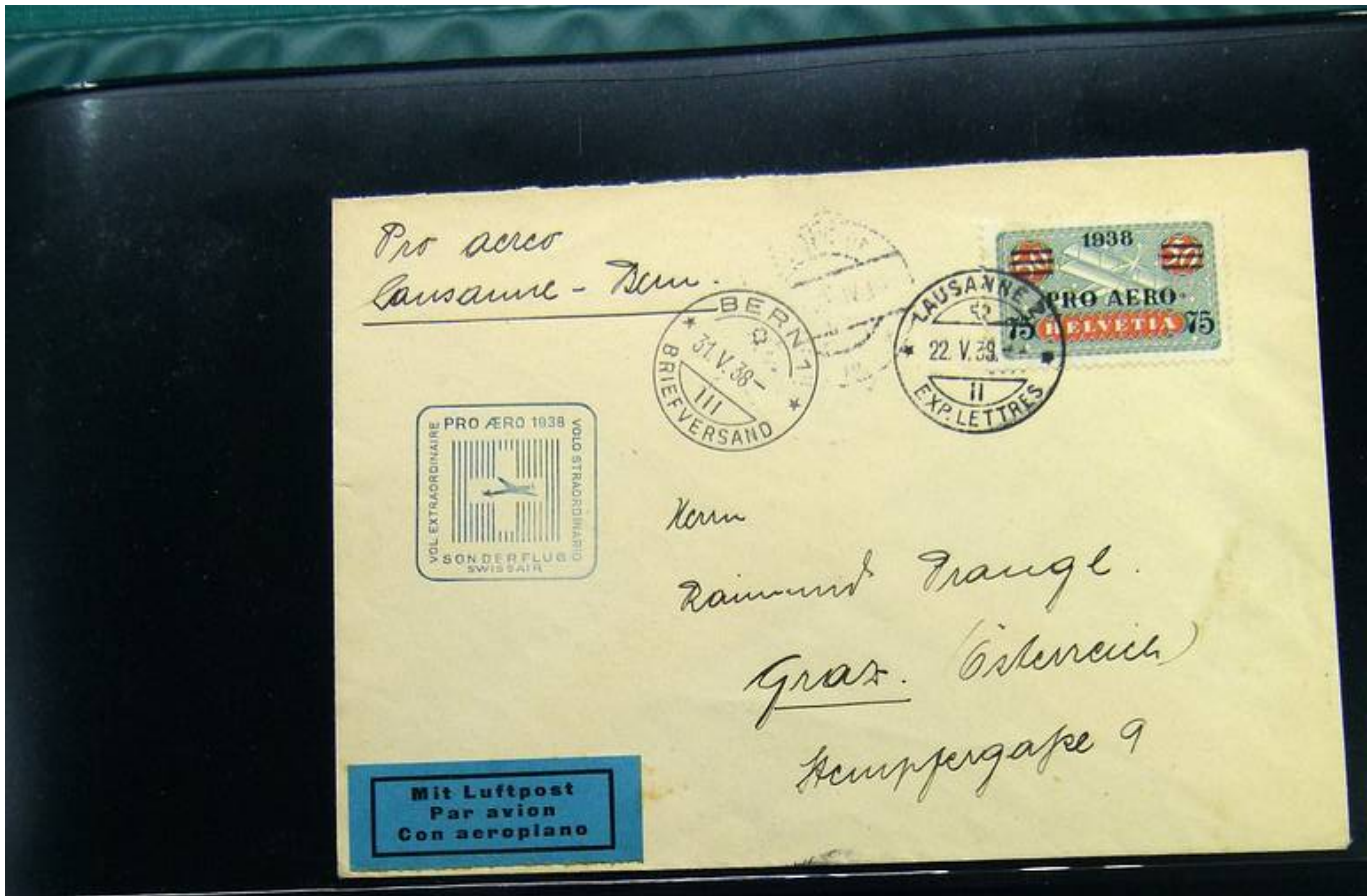 Pro aereo
Lausanne - Bern.
1938
PRO AERO
75 HELVETIA 75
LAUSANNE
22. V. 38.-
II
EXP. LETTRES
BERN 1
31. V. 38-
III
BRIEFVERSAND
PRO ÆRO 1938
VOL EXTRAORDINAIRE
VOLO STRAORDINARIO
SONDERFLUG
SWISSAIR
Herrn
Raimund Prangl.
Graz. (Österreich)
Hempfergaße 9
Mit Luftpost
Par avion
Con aeroplano